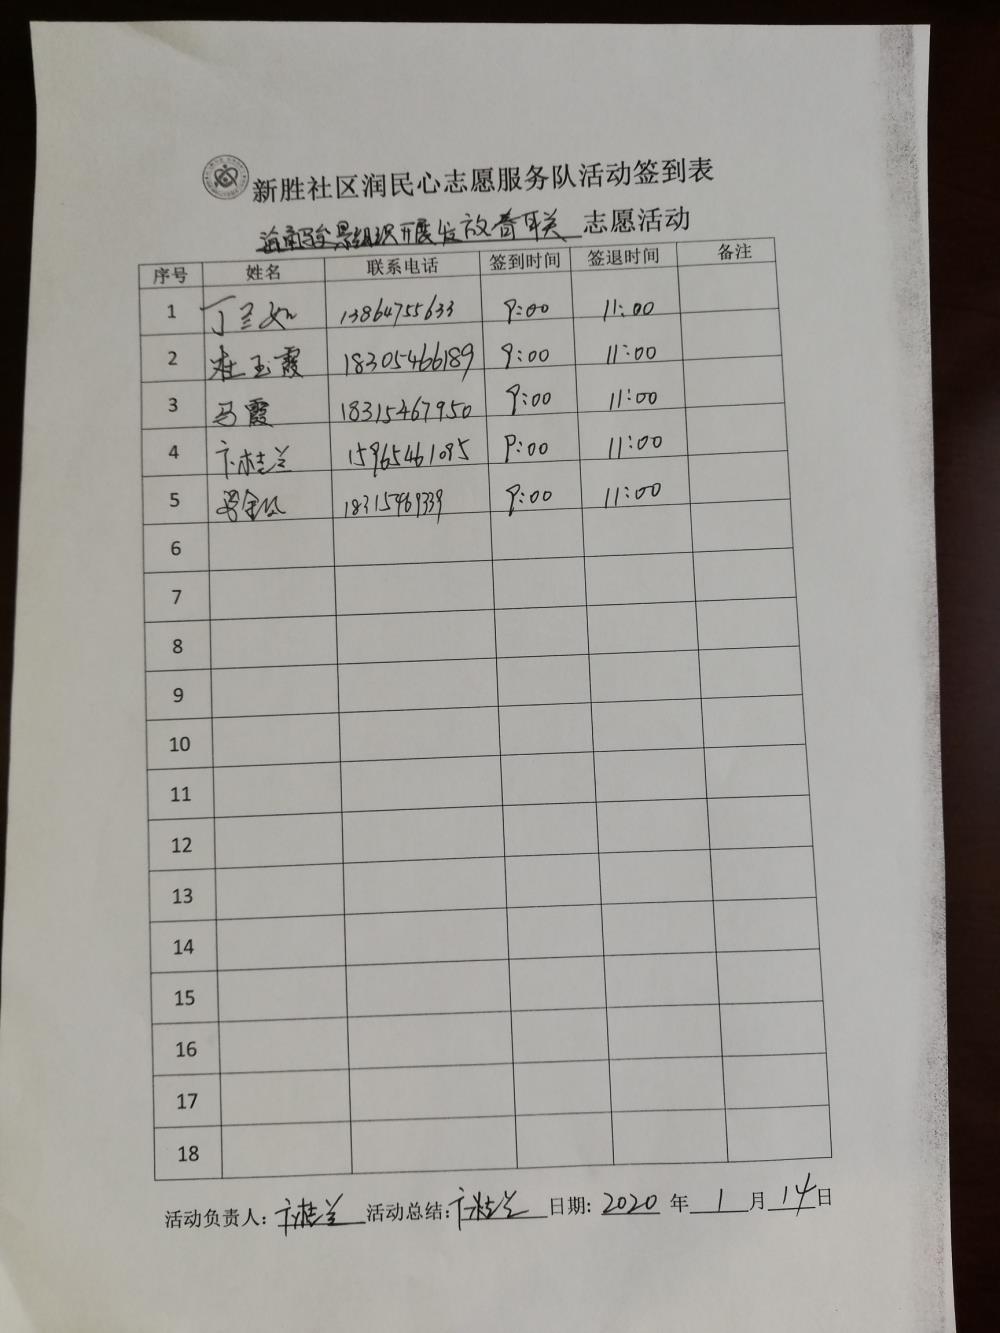 新胜社区润民心志愿服务队活动签到表
组织开展发放春联 志愿活动
序号 姓名 联系电话 签到时间 签退时间 备注
1 丁兰如 13864755633 9:00 11:00
2 杜玉霞 18305466189 9:00 11:00
3 马霞 18315467950 9:00 11:00
4 卞桂兰 15965461095 9:00 11:00
5 18315469339 9:00 11:00
6
7
8
9
10
11
12
13
14
15
16
17
18
活动负责人: 卞桂兰 活动总结: 卞桂兰 日期: 2020 年 1 月 14 日